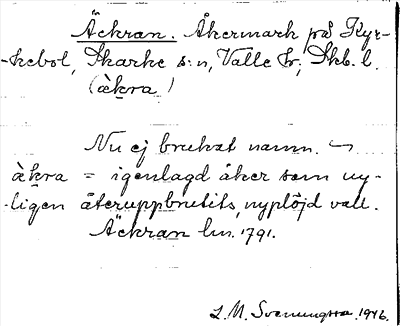 Äckran. Åkermark på Kyr-
-kebol, Skarke s:n, Valle hr, Skb. l.
(àkra)
Nu ej brukat namn. ~
àkra = igenlagd åker som ny-
-ligen återuppbrutits, nyplöjd vall.
Äckran lm. 1791.
L. M. Svenungsson. 1946.